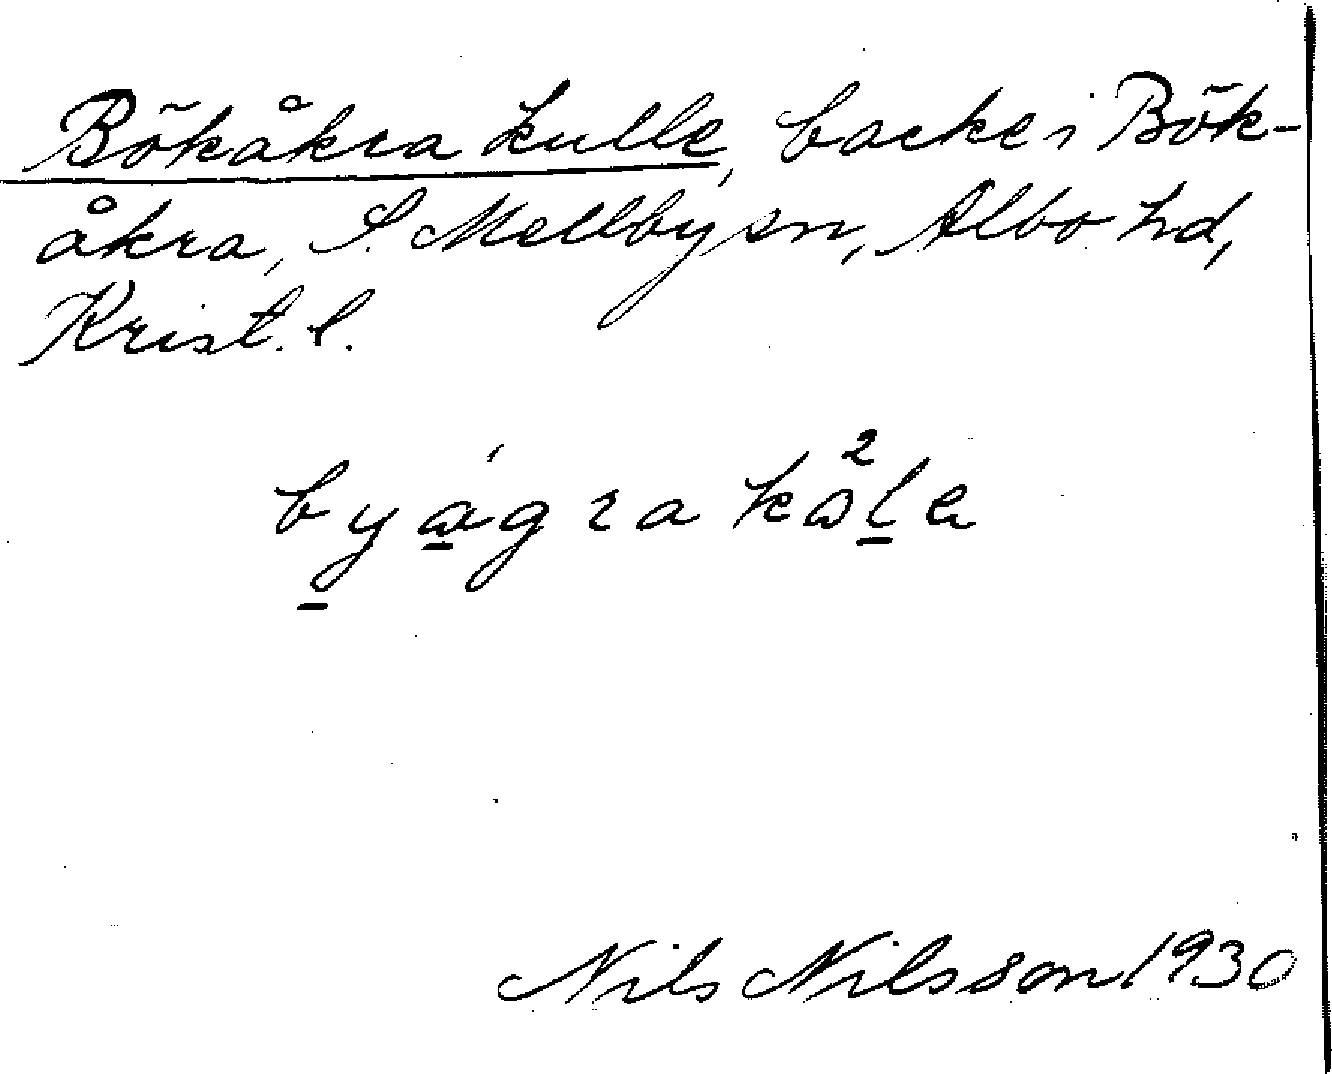 Bökåkra kulle, backe i Bök-
åkra, S. Mellby sn, Albo hd,
Krist. l.
byágra kå²la
Nils Nilsson 1930